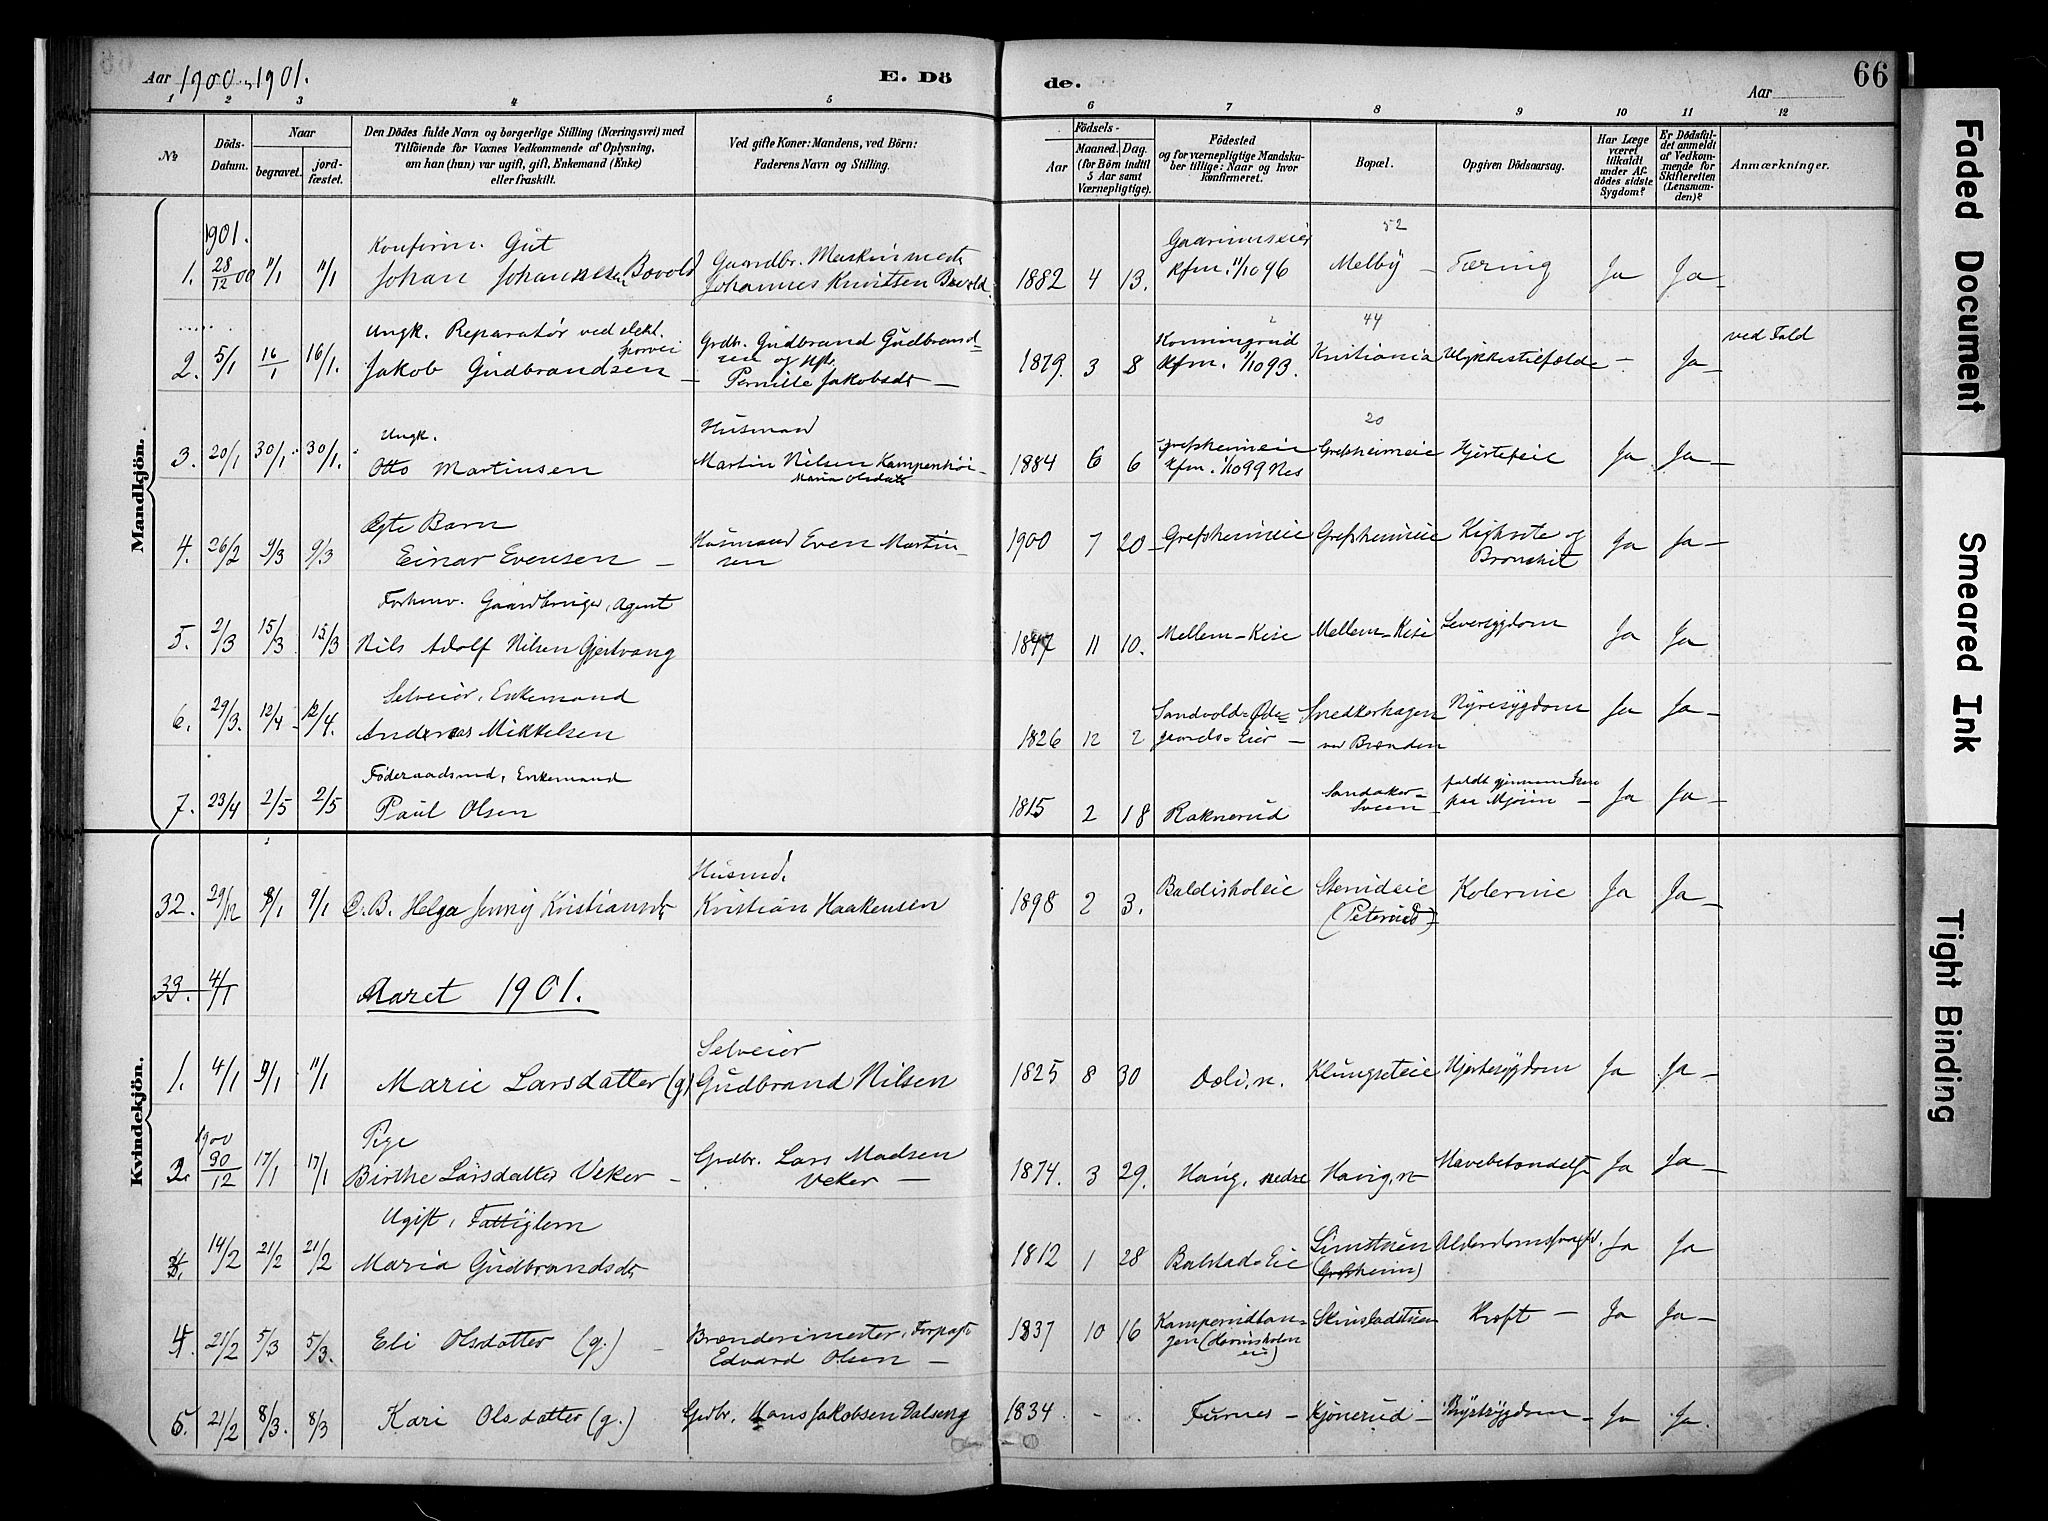 Aar 1900-1901.
E. Dö
de.
Aar
66
1 2 3 4 5 6 7 8 9 10 11 12
№
Döds-Datum.
Naar
begravet.
jord-fæstet.
Den Dödes fulde Navn og borgerlige Stilling (Næringsvei) med
Tilföiende for Voxnes Vedkommende af Oplysning,
om han (hun) var ugift, gift, Enkemand (Enke)
eller fraskilt.
Ved gifte Koner: Mandens, ved Börn:
Faderens Navn og Stilling.
Födsels-
Aar
Maaned. Dag.
(for Börn indtil
5 Aar samt
Værnepligtige).
Födested
og for værnepligtige Mandska-
ber tillige: Naar og hvor
konfirmeret.
Bopæl.
Opgiven Dödsaarsag.
Har Læge
været
tilkaldt
under Af-
dödes sidste
Sygdom?
Er Dödsfal-
det anmeldt
af Vedkom-
mende for
Skifteretten
(Lensman-
den)?
Anmærkninger.
Mandkjön.
1901.
Konfirm. Gut
Gaardbr. Maskinmest.
52
1. 28/12 00 11/1 11/1 Johan Johannesen Bovold Johannes Knutsen Bovold. 1882 4 13. kfm. 11/10 96 Melby – Tæring Ja Ja –
Ungk. Reparatør ved elekt. sporvei
Grdbr. Gudbrand Gudbrand=
sen og Hst.
44
ved Fald
2. 5/1 16/1 16/1. Jakob Gudbrandsen – Pernille Jakobsdt – 1879. 3 8 kfm. 1/10 93. Kristiania Ulykkestilfælde – Ja –
Ungk.
Husmand
20
3. 20/1 30/1. 30/1. Otto Martinsen Martin Nilsen Kampenhöi – 1884 6 6 Grefsheimeie Grefsheimeie Hjertefeil Ja Ja –
Maria Olsdatt
kfm. 1/10 99 Nes
Ægte Barn
4. 26/2 9/3 9/3 Einar Evensen – Husmand Even Martin-
sen
1900 7 20 – Grefsheimeie Grefsheimeie Kighoste og
Bronchit Ja Ja –
Forhenv. Gaardbruger, Agent
5. 2/3 15/3 15/3 Nils Adolf Nilsen Gjestvang 1847 11 10. Mellem-Kise Mellem-Kise Leversygdom Ja Ja
Selveier, Enkemand
6. 29/3. 12/4 – 12/4. Andreas Mikkelsen 1826 12 2 Sandvold=Øde=
gaards-Eier – Snedkerhagen
ved Brænden Nyresygdom Ja Ja –
Föderaadsmd, Enkemand
7. 23/4 2/5 2/5 Paul Olsen 1815 2 18 Raknerud Sandaker-
Sveen – faldt gjennem Isen
paa Mjösen – Ja Ja –
Kvindekjön.
Husmd.
32. 29/12 8/1 9/1 Æ. B. Helga Jenny Kristiansdt Kristian Haakensen 1898 2 3. Baldisholeie Stenideie
(Peterud) Kolerine Ja Ja –
33. 4/1 Aaret 1901.
Selveier
1. 4/1 9/1 11/1 Marie Larsdatter (g) Gudbrand Nilsen 1825 8 30 Dæli, n. Klungseteie Hjertesygdom Ja Ja –
1900
Pige
2. 30/12 17/1 17/1 Birthe Larsdatter Veker – Grdbr. Lars Madsen
Veker – 1874. 3 29. Haug, nedre Havig, n – Mavebetændelse Ja Ja –
Ugift, Fattiglem
3. 14/2 21/2 21/2 Maria Gudbrandsdt 1812 1 28 Balstad Eie Limstuen
(Grefsheim) Alderdomssvaghd. Ja Ja
4. 21/2 5/3 5/3. Eli Olsdatter (g.) – Brænderimester, Forpagt
Edvard Olsen – 1837 10 16 Kamperudtan-
gen Skinstadstuen Kræft – Ja Ja –
5. 21/2 8/3. 8/3 Kari Olsdatter (g.) Grdbr. Hans Jakobsen Dalseng 1834 . - . Furnes – Kjönerud – Brystsygdom – Ja Ja.
Faded Document
Smeared Ink
Tight Binding